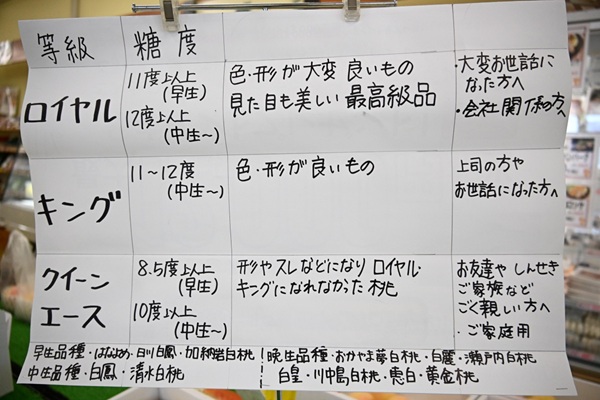 等級 糖度
ロイヤル
11度以上
(早生)
12度以上
(中生~)
色・形が大変良いもの
見た目も美しい最高級品
・大変お世話に
なった方へ
・会社関係の方へ
キング
11~12度
(中生~)
色・形が良いもの
上司の方や
お世話になった方へ
クイーン
エース
8.5度以上
(早生)
10度以上
(中生~)
形やスレなどになり ロイヤル・
キングになれなかった桃
お友達や しんせき
ご家族など
ごく親しい方へ
・ご家庭用
早生品種・はなよめ・日川白鳳・加納岩白桃
中生品種・白鳳・清水白桃
晩生品種・おかやま夢白桃・白麗・瀬戸内白桃
白皇・川中島白桃・恵白・黄金桃